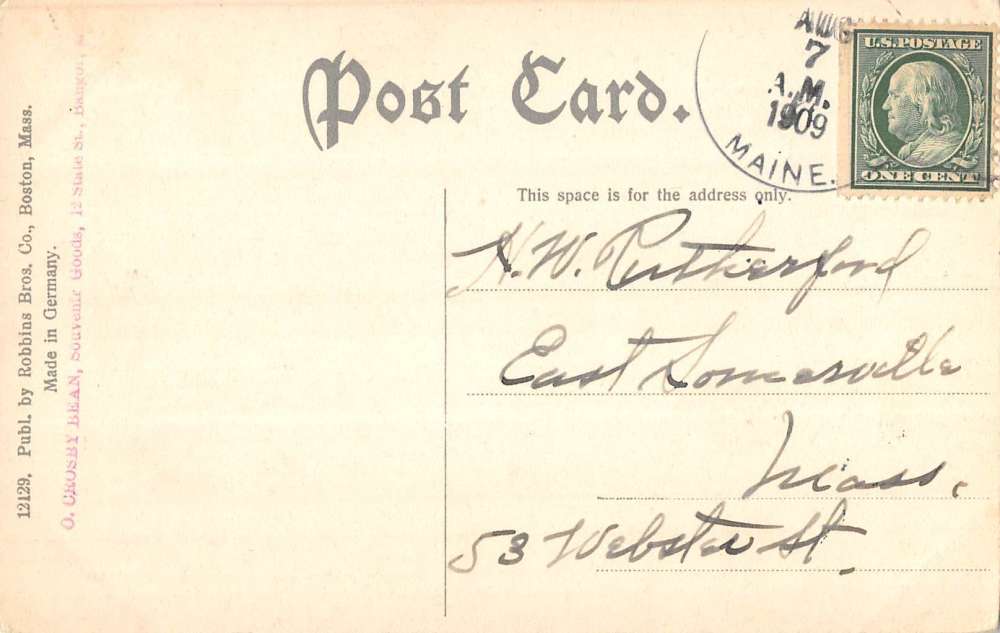 Post Card.
AUG
7
A.M.
1909
MAINE.
U.S. POSTAGE
ONE CENT
This space is for the address only.
H. W. Rutherford
East Somerville
Mass.
53 Webster St.
12129. Publ. by Robbins Bros. Co., Boston, Mass.
Made in Germany.
O. CROSBY BEAN, Souvenir Goods, 12 State St., Bangor,